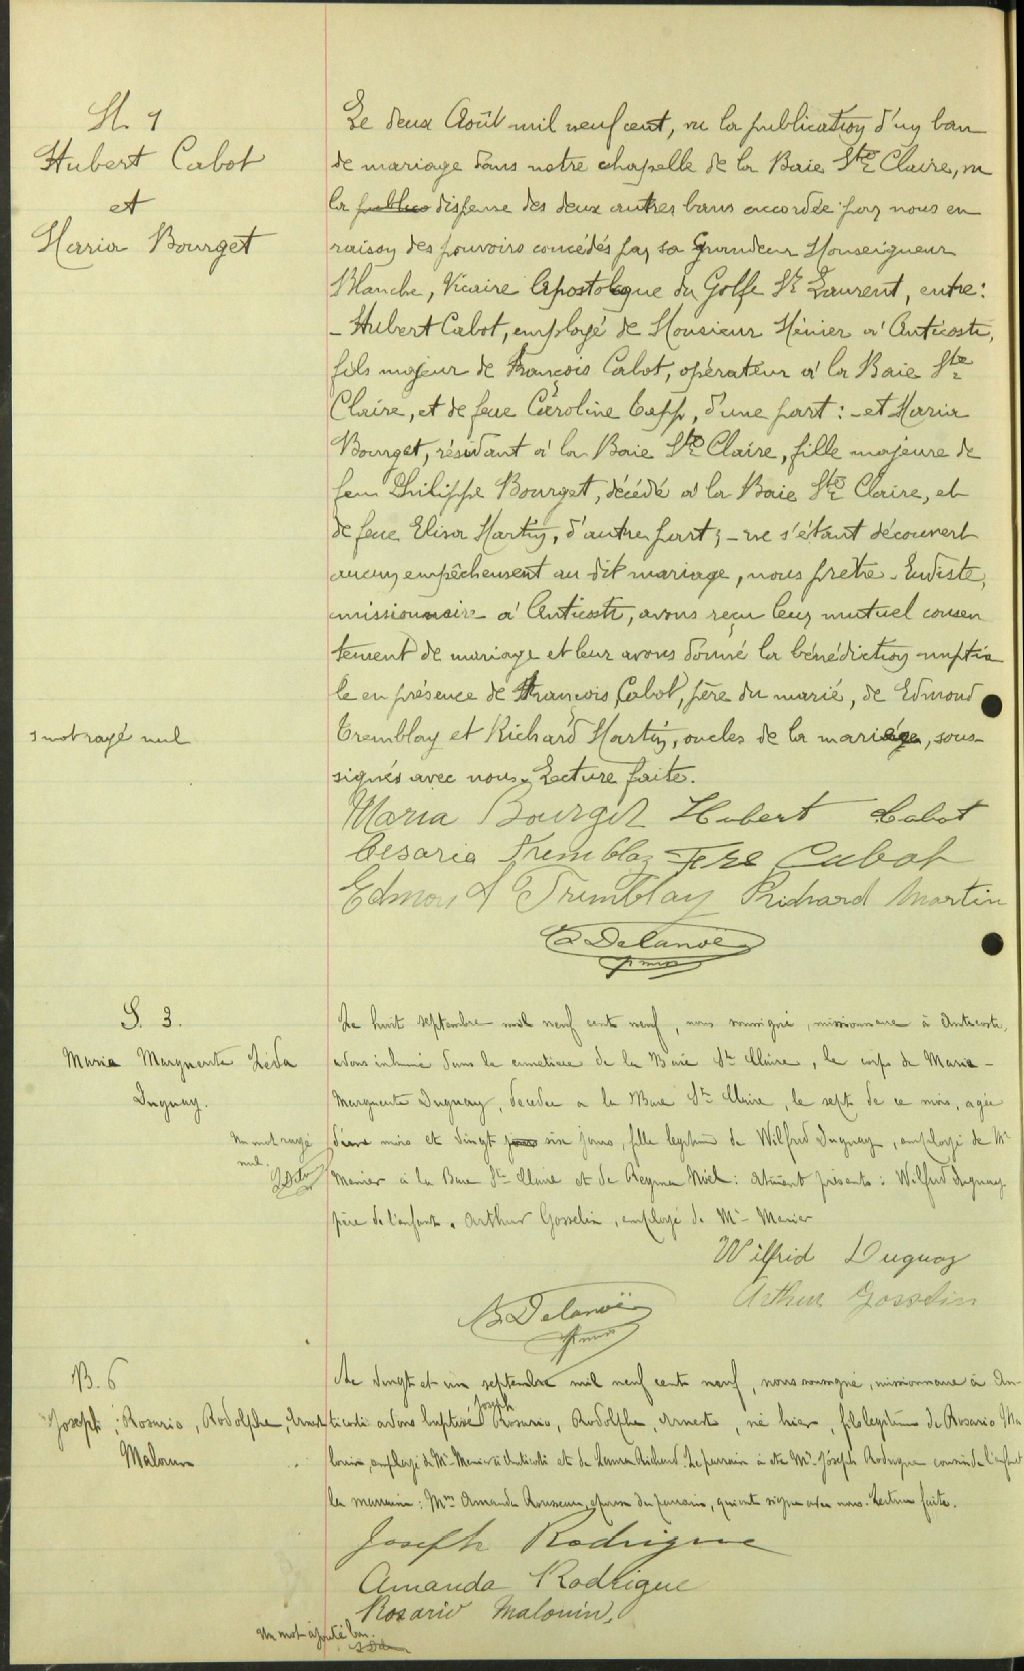 M. 1
Hubert Cabot
et
Maria Bourget
Le deux Août mil neuf cent, vu la publication d'un ban
de mariage dans notre chapelle de la Baie Ste Claire, vu
la publica dispense des deux autres bans accordée par nous en
raison des pouvoirs concédés par sa Grandeur Monseigneur
Blanche, Vicaire Apostolique du Golfe St Laurent, entre:
- Hubert Cabot, employé de Monsieur Ménier à Anticosti,
fils majeur de François Cabot, opérateur à la Baie Ste
Claire, et de feue Caroline Capp, d'une part: - et Maria
Bourget, résidant à la Baie Ste Claire, fille majeure de
feu Philippe Bourget, décédé à la Baie Ste Claire, et
de feue Elisa Martin, d'autre part; - ne s'étant découvert
aucun empêchement au dit mariage, nous prêtre-Eudiste,
missionnaire à Anticosti, avons reçu leur mutuel consen
tement de mariage et leur avons donné la bénédiction nuptia
le en présence de François Cabot, père du marié, de Edmond
1 mot rayé nul
Tremblay et Richard Martin, oncles de la mariée, sous-
signés avec nous. Lecture faite.
Maria Bourget Hubert Cabot
Cesaria Tremblay Frs Cabot
Edmond Tremblay Richard Martin
Delanoë
p miss
S. 3.
Maria Marguerite Léda
Duguay.
Le huit septembre mil neuf cent neuf, nous soussigné, missionnaire à Anticosti,
avons inhumé dans le cimetière de la Baie Ste Claire, le corps de Maria-
Marguerite Duguay, décédée à la Baie Ste Claire, le sept de ce mois, agée
Un mot rayé
nul.
deux mois et vingt jours six jours, fille legitime de Wilfrid Duguay, employé de Mr
Menier à la Baie Ste Claire et de Regina Noël: etaient présents: Wilfrid Duguay
père de l'enfant, Arthur Gosselin, employé de Mr Menier
Wilfrid Duguay
Arthur Gosselin
Delanoë
p miss
B. 6
Joseph, Rosario, Rodolphe, Ernest
Malouin
Le vingt et un septembre mil neuf cent neuf, nous soussigné, missionnaire à An-
ticosti avons baptisé Joseph Rosario, Rodolphe, Ernest, né hier, fils legitime de Rosario Ma
louin, employé de Mr Menier à Anticosti et de Laura Richard. Le parrain a été Mr Joseph Rodrigue cousin de l'enfant
la marraine: Mme Amanda Rousseau, epouse du parrain, qui ont signé avec nous. Lecture faite.
Joseph Rodrigue
Amanda Rodrigue
Rosario Malouin.
Un mot ajouté bon.